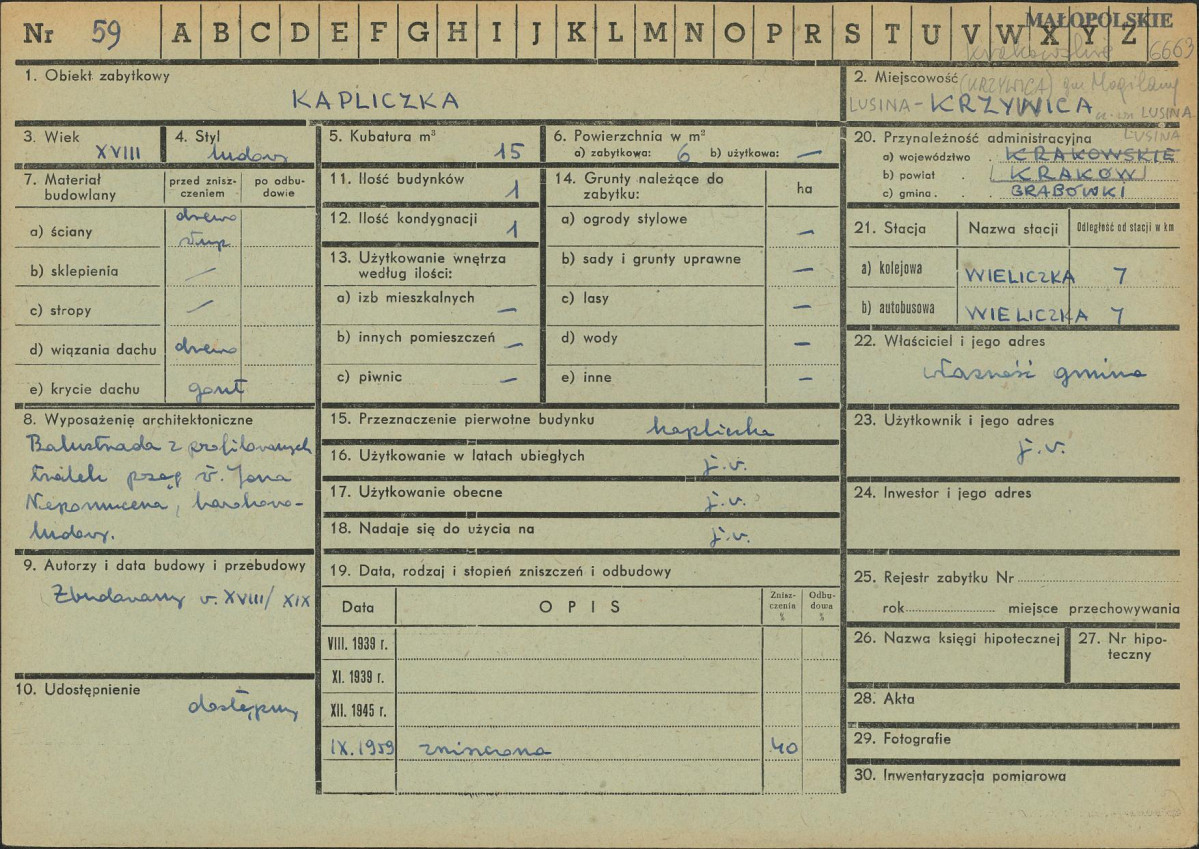 Nr 59 A B C D E F G H I J K L M N O P R S T U V W X Y Z
MAŁOPOLSKIE
krakowskie 6663
1. Obiekt zabytkowy
KAPLICZKA
2. Miejscowość (KRZYWICA) gm Mogilany
LUSINA - KRZYWICA LUSINA
LUSINA
3. Wiek
XVIII
4. Styl
ludowy
5. Kubatura m³
15
6. Powierzchnia w m²
a) zabytkowa: 6 b) użytkowa: —
7. Materiał budowlany
przed zniszczeniem
po odbudowie
a) ściany drewno
słup
b) sklepienia —
c) stropy —
d) wiązania dachu drewno
e) krycie dachu gont
8. Wyposażenie architektoniczne
Balustrada z profilowanych
tralek posąg św. Jana
Nepomucena, barokowo-
ludowy.
9. Autorzy i data budowy i przebudowy
Zbudowany w. XVIII/XIX
10. Udostępnienie
dostępny
11. Ilość budynków
1
12. Ilość kondygnacji
1
13. Użytkowanie wnętrza
według ilości:
a) izb mieszkalnych —
b) innych pomieszczeń —
c) piwnic —
14. Grunty należące do
zabytku:
ha
a) ogrody stylowe —
b) sady i grunty uprawne —
c) lasy —
d) wody —
e) inne —
15. Przeznaczenie pierwotne budynku kapliczka
16. Użytkowanie w latach ubiegłych j.w.
17. Użytkowanie obecne j.w.
18. Nadaje się do użycia na j.w.
19. Data, rodzaj i stopień zniszczeń i odbudowy
Data OPIS Zniszczenia % Odbudowa %
VIII. 1939 r.
XI. 1939 r.
XII. 1945 r.
IX. 1959 zniszczona 40
20. Przynależność administracyjna
a) województwo . KRAKOWSKIE
b) powiat . KRAKÓW
c) gmina . GRABÓWKI
21. Stacja Nazwa stacji Odległość od stacji w km
a) kolejowa WIELICZKA 7
b) autobusowa WIELICZKA 7
22. Właściciel i jego adres
własność gminna
23. Użytkownik i jego adres
j.w.
24. Inwestor i jego adres
25. Rejestr zabytku Nr
rok miejsce przechowywania
26. Nazwa księgi hipotecznej
27. Nr hipoteczny
28. Akta
29. Fotografie
30. Inwentaryzacja pomiarowa